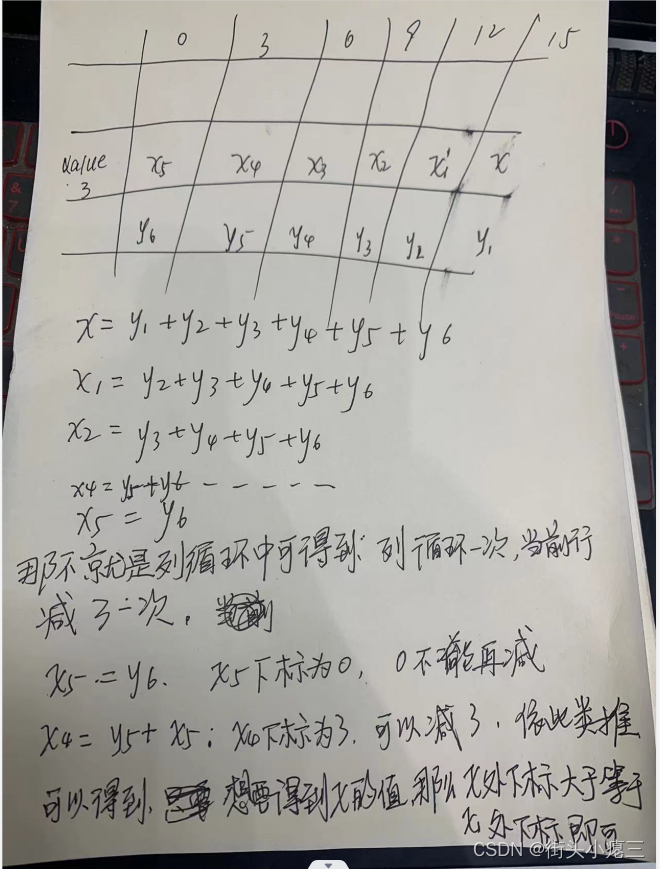 0 3 6 9 12 15
value 3 x5 x4 x3 x2 x1' x
y6 y5 y4 y3 y2 y1
x = y1 + y2 + y3 + y4 + y5 + y6
x1 = y2 + y3 + y4 + y5 + y6
x2 = y3 + y4 + y5 + y6
x4 = y5 + y6 - - - - -
x5 = y6
那不就是列循环中可得到: 列循环一次, 当前行
减了一次.
x5 = y6. x5下标为0, 0不能再减
x4 = y5 + x5; x4下标为3, 可以减3, 依此类推
可以得到, 想要得到x的值, 那么x处下标大于等于
x1处下标即可
CSDN @街头小瘪三